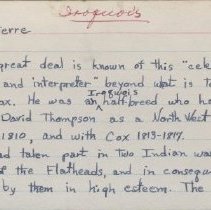 Iroquois
ierre
great deal is known of this "cele
and interpreter" beyond what is to
Iroquois
ox. He was an half breed who ha
David Thompson as a North West
1810, and with Cox 1815-1817.
ad taken part in two Indian wa
of the Flatheads, and in conseque
by them in high esteem. The